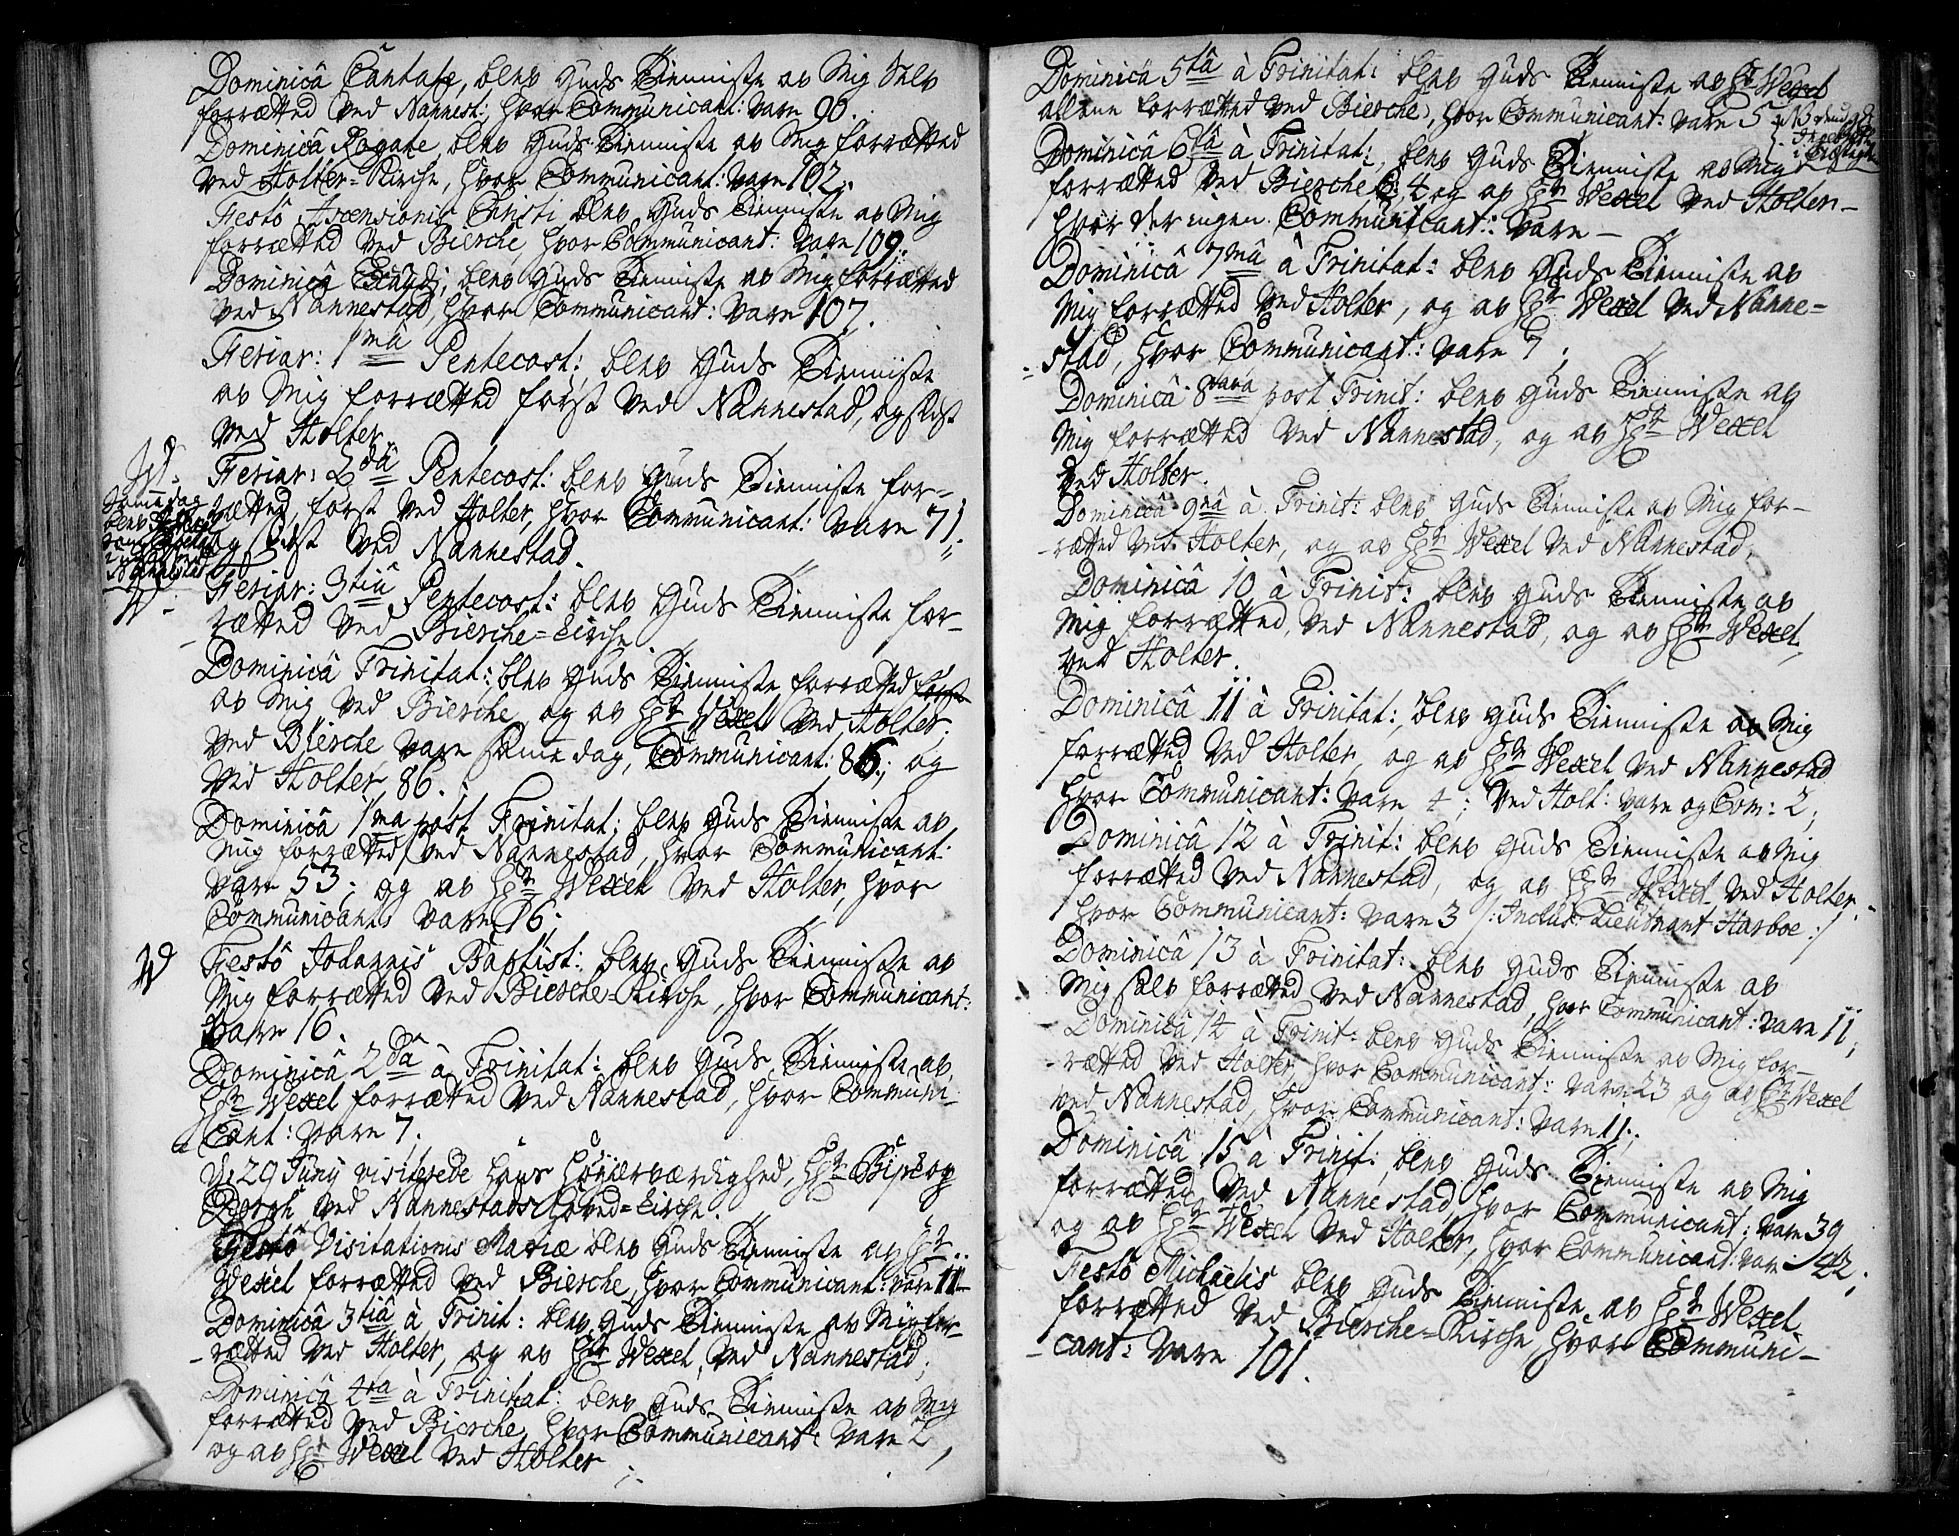 Dominicâ Cantate, blev Guds Tienniste av Mig Selv
forrætted ved Nannest: hvor Communicant: vare 90.
Dominicâ Rogate, blev Guds Tienniste av Mig forrætted
ved Holter-Kirche, hvor Communicant: vare 102.
Festô Ascensionis Christi blev Guds Tienniste av Mig
forrætted ved Bierche hvor Communicant: vare 109.
Dominicâ Exaudi, blev Guds Tienniste av Mig forrætted
ved Nannestad, hvor Communicant: vare 107.
Feriar: 1mâ Pentecost: blev Guds Tienniste
av Mig forrætted først ved Nannestad, og sidst
ved Holter.
W. Feriar: 2dâ Pentecost: blev Guds Tienniste for-
rætted, først ved Holter, hvor Communicant: vare 71.
og sidst ved Nannestad.
Samme dag
blev
Nannestad
W. Feriar: 3tiâ Pentecost: blev Guds Tienniste for-
rætted ved Bierche-Kirche.
Dominicâ Trinitat: blev Guds Tienniste forrætted først
av Mig ved Bierche og av Hr Wexel ved Holter.
ved Bierche vare samme dag, Communicant: 86; og
ved Holter 86.
Dominicâ 1ma post Trinitat: blev Guds Tienniste av
Mig forrætted ved Nannestad, hvor Communicant:
vare 53; og av Hr Wexel ved Holter, hvor
Communicant: vare 16.
W Festô Johannis Baptist: blev Guds Tienniste av
Mig forrætted ved Bierche-Kirche, hvor Communicant:
vare 16.
Dominicâ 2dâ à Trinitat: blev Guds Tienniste av
Hr Wexel forrætted ved Nannestad, hvor Communi-
cant: vare 7.
d: 29 Juny visiterede hans Højærværdighed, Hr Biskop
ved Nannestads Hoved-Kirche.
Festô Visitationis Mariæ blev Guds Tienniste av Hr
Wexel forrætted ved Bierche, hvor Communicant: vare 11-
Dominicâ 3tiâ à Trinit: blev Guds Tienniste av Mig for-
-rætted ved Holter, og av Hr Wexel, ved Nannestad.
Dominicâ 4ta à Trinitat: blev Guds Tienniste av Mig
forrætted ved Bierche, hvor Communicant: vare 2,
og av Hr Wexel ved Holter.
Dominicâ 5tâ à Trinitat: blev Guds Tienniste av Hr Wexel
allene forrætted ved Bierche, hvor Communicant: vare 5
Dominicâ 6tâ à Trinitat:, blev Guds Tienniste av Mig
forrætted ved Bierche C: 4. og av Hr Wexel ved Holter-
hvor der ingen Communicant: vare -
Dominicâ 7mâ à Trinitat: blev Guds Tienniste av
Mig forrætted ved Holter, og av Hr Wexel ved Nanne-
-stad, hvor Communicant: vare 7.
Dominicâ 8tava post Trinit: blev Guds Tienniste av
Mig forrætted ved Nannestad, og av Hr Wexel
ved Holter.
Dominicâ 9nâ à Trinit: blev Guds Tienniste av Mig for-
-rætted ved Holter, og av Hr Wexel ved Nannestad.
Dominicâ 10 à Trinit: blev Guds Tienniste av
Mig forrætted, ved Nannestad, og av Hr Wexel,
ved Holter.
Dominicâ 11 à Trinitat:, blev Guds Tienniste av Mig
forrætted ved Holter, og av Hr Wexel ved Nannestad
hvor Communicant: vare 4; ved Holt: vare og Com: 2;
Dominicâ 12 à Trinit: blev Guds Tienniste av Mig
forrætted ved Nannestad, og av Hr Wexel ved Holter.
hvor Communicant: vare 3 /: Inclus: Lieutnant Harboe :/
Dominicâ 13 à Trinitat: blev Guds Tienniste av
Mig selv forrætted ved Nannestad, hvor Communicant: vare 11;
Dominicâ 14 à Trinit: blev Guds Tienniste av Mig for-
-rætted ved Holter, hvor Communicant: vare 23 og av Hr Wexel
ved Nannestad, hvor Communicant: vare 11;
Dominicâ 15 à Trinit: blev Guds Tienniste av Mig
forrætted ved Nannestad, hvor Communicant: vare 39
og av Hr Wexel ved Holter, hvor Communicant: var 142.
Festô Michaelis blev Guds Tienniste av Hr Wexel
forrætted ved Bierche-Kirche, hvor Communi-
-cant: vare 101.